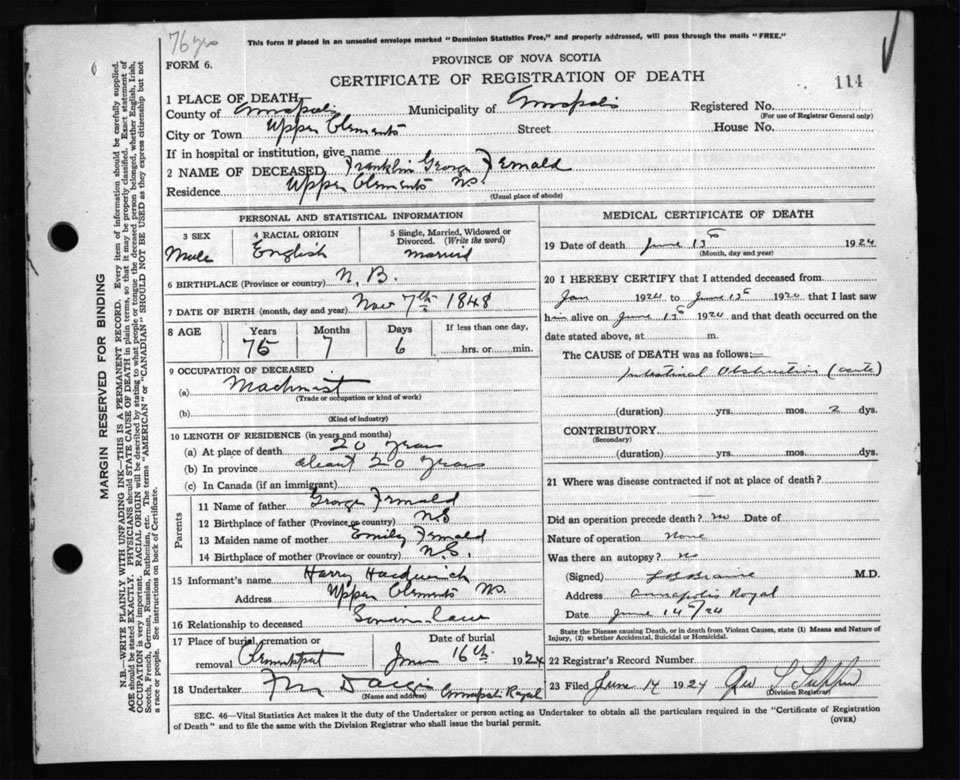 76 yrs
This form if placed in an unsealed envelope marked "Dominion Statistics Free," and properly addressed, will pass through the mails "FREE."
FORM 6.
PROVINCE OF NOVA SCOTIA
CERTIFICATE OF REGISTRATION OF DEATH
114
1 PLACE OF DEATH
County of Annapolis Municipality of Annapolis Registered No.
(For use of Registrar General only)
City or Town Upper Clements Street House No.
If in hospital or institution, give name
2 NAME OF DECEASED Franklin George Fernald
Residence Upper Clements N.S.
(Usual place of abode)
PERSONAL AND STATISTICAL INFORMATION
3 SEX 4 RACIAL ORIGIN 5 Single, Married, Widowed or
Divorced. (Write the word)
Male English Married
6 BIRTHPLACE (Province or country) N.B.
7 DATE OF BIRTH (month, day and year) Nov 7th 1848
8 AGE Years Months Days If less than one day,
75 7 6 hrs. or min.
9 OCCUPATION OF DECEASED
(a) Machinist
(Trade or occupation or kind of work)
(b)
(Kind of industry)
10 LENGTH OF RESIDENCE (in years and months)
(a) At place of death 20 years
(b) In province about 20 years
(c) In Canada (if an immigrant)
Parents
11 Name of father George Fernald
12 Birthplace of father (Province or country) N.S
13 Maiden name of mother Emily Fernald
14 Birthplace of mother (Province or country) N.S.
15 Informant's name Harry Hardwick
Address Upper Clements N.S.
16 Relationship to deceased Son in law
17 Place of burial, cremation or Date of burial
removal Clementsport June 16th 1924
18 Undertaker Annapolis Royal
(Name and address)
MEDICAL CERTIFICATE OF DEATH
19 Date of death June 13th 1924
(Month, day and year)
20 I HEREBY CERTIFY that I attended deceased from
Jan 1924 to June 13th 1924 that I last saw
him alive on June 13th 1924 and that death occurred on the
date stated above, at m.
The CAUSE of DEATH was as follows:—
Intestinal Obstruction (acute)
(duration) yrs. mos. 2 dys.
CONTRIBUTORY
(Secondary)
(duration) yrs. mos. dys.
21 Where was disease contracted if not at place of death?
Did an operation precede death? no Date of
Nature of operation None
Was there an autopsy? No
(Signed) L B Braine M.D.
Address Annapolis Royal
Date June 14th/24
State the Disease causing Death, or in death from Violent Causes, state (1) Means and Nature of
Injury, (2) whether Accidental, Suicidal or Homicidal.
22 Registrar's Record Number
23 Filed June 14 1924
(Division Registrar)
SEC. 46—Vital Statistics Act makes it the duty of the Undertaker or person acting as Undertaker to obtain all the particulars required in the "Certificate of Registration
of Death" and to file the same with the Division Registrar who shall issue the burial permit.
(OVER)
MARGIN RESERVED FOR BINDING
N.B.—WRITE PLAINLY WITH UNFADING INK—THIS IS A PERMANENT RECORD. Every item of information should be carefully supplied.
AGE should be stated EXACTLY. PHYSICIANS should STATE CAUSE OF DEATH in plain terms, so that it may be properly classified. Exact statement of
OCCUPATION is very important. RACIAL ORIGIN will be described by stating to what people or tongue the deceased person belonged, whether English, Irish,
Scotch, French, German, Russian, Ruthenian, etc. The terms "AMERICAN" or "CANADIAN" SHOULD NOT BE USED as they express citizenship but not
a race or people. See instructions on back of Certificate.